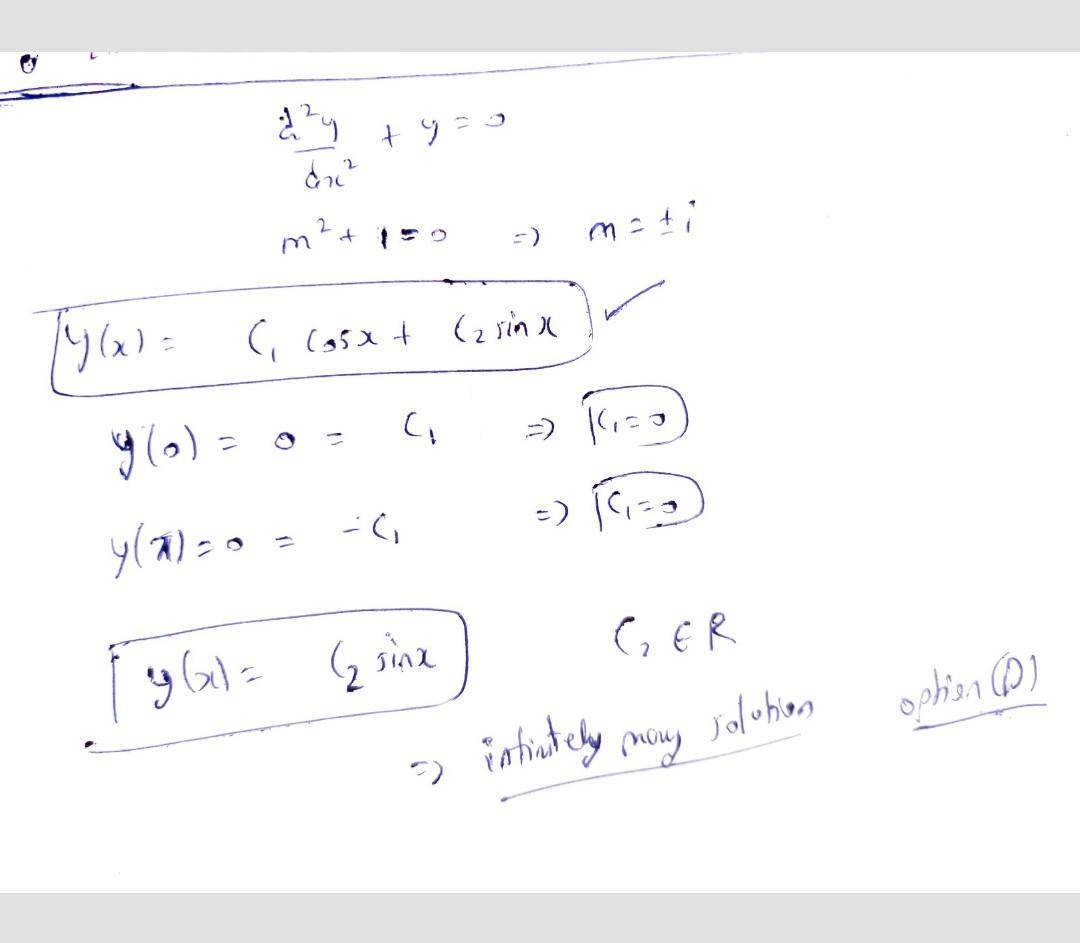 d²y/dx² + y = 0
m² + 1 = 0 => m = ± i
y(x) = C₁ cosx + C₂ sinx ✓
y(0) = 0 = C₁ => C₁ = 0
y(π) = 0 = -C₁ => C₁ = 0
y(x) = C₂ sinx C₂ ∈ R
=> infinitely many solution option (D)